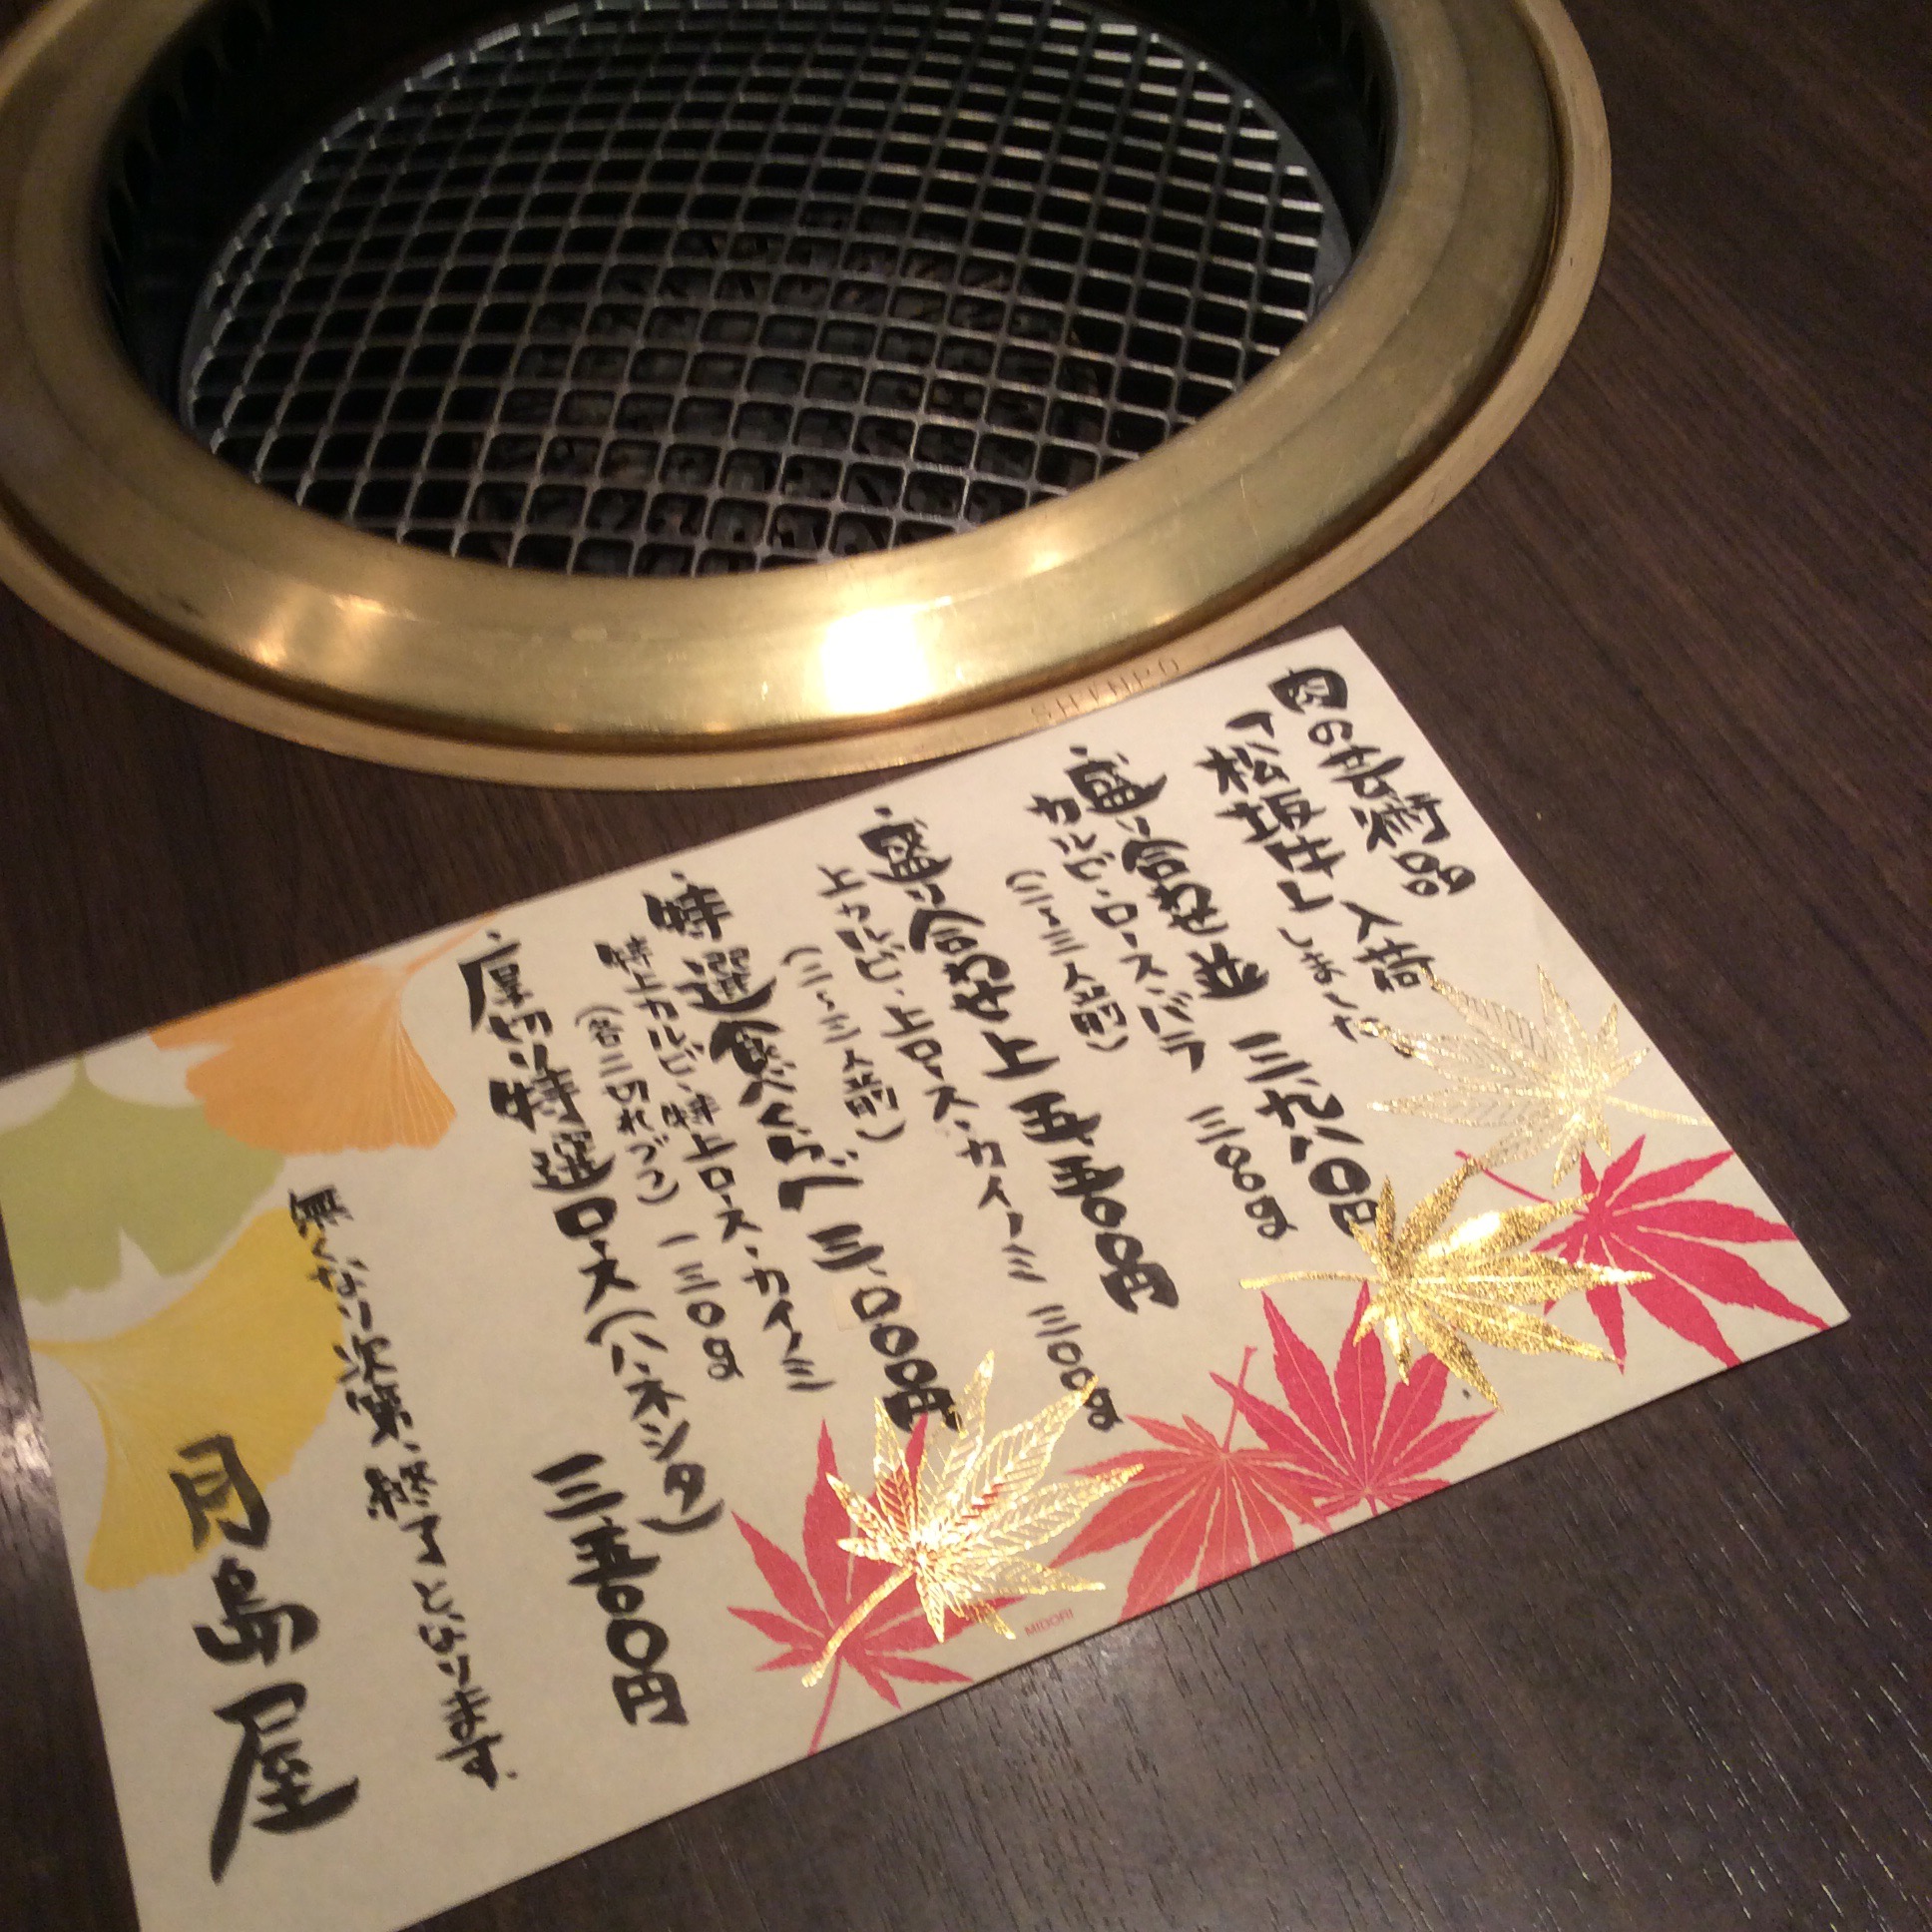 SHINPO
肉の芸術品
「松坂牛」入荷
しました
・盛り合わせ並 三、九八〇円
カルビ・ロース・バラ 三〇〇g
(二〜三人前)
・盛り合わせ上 五、五〇〇円
上カルビ・上ロース・カイノミ 三〇〇g
(二〜三人前)
・特選食べくらべ 三、〇〇〇円
特上カルビ・特上ロース・カイノミ
(各三切れづつ) 一三〇g
・厚切り特選ロース(ハネシタ)
三、五〇〇円
無くなり次第、終了となります.
月島屋
MIDORI